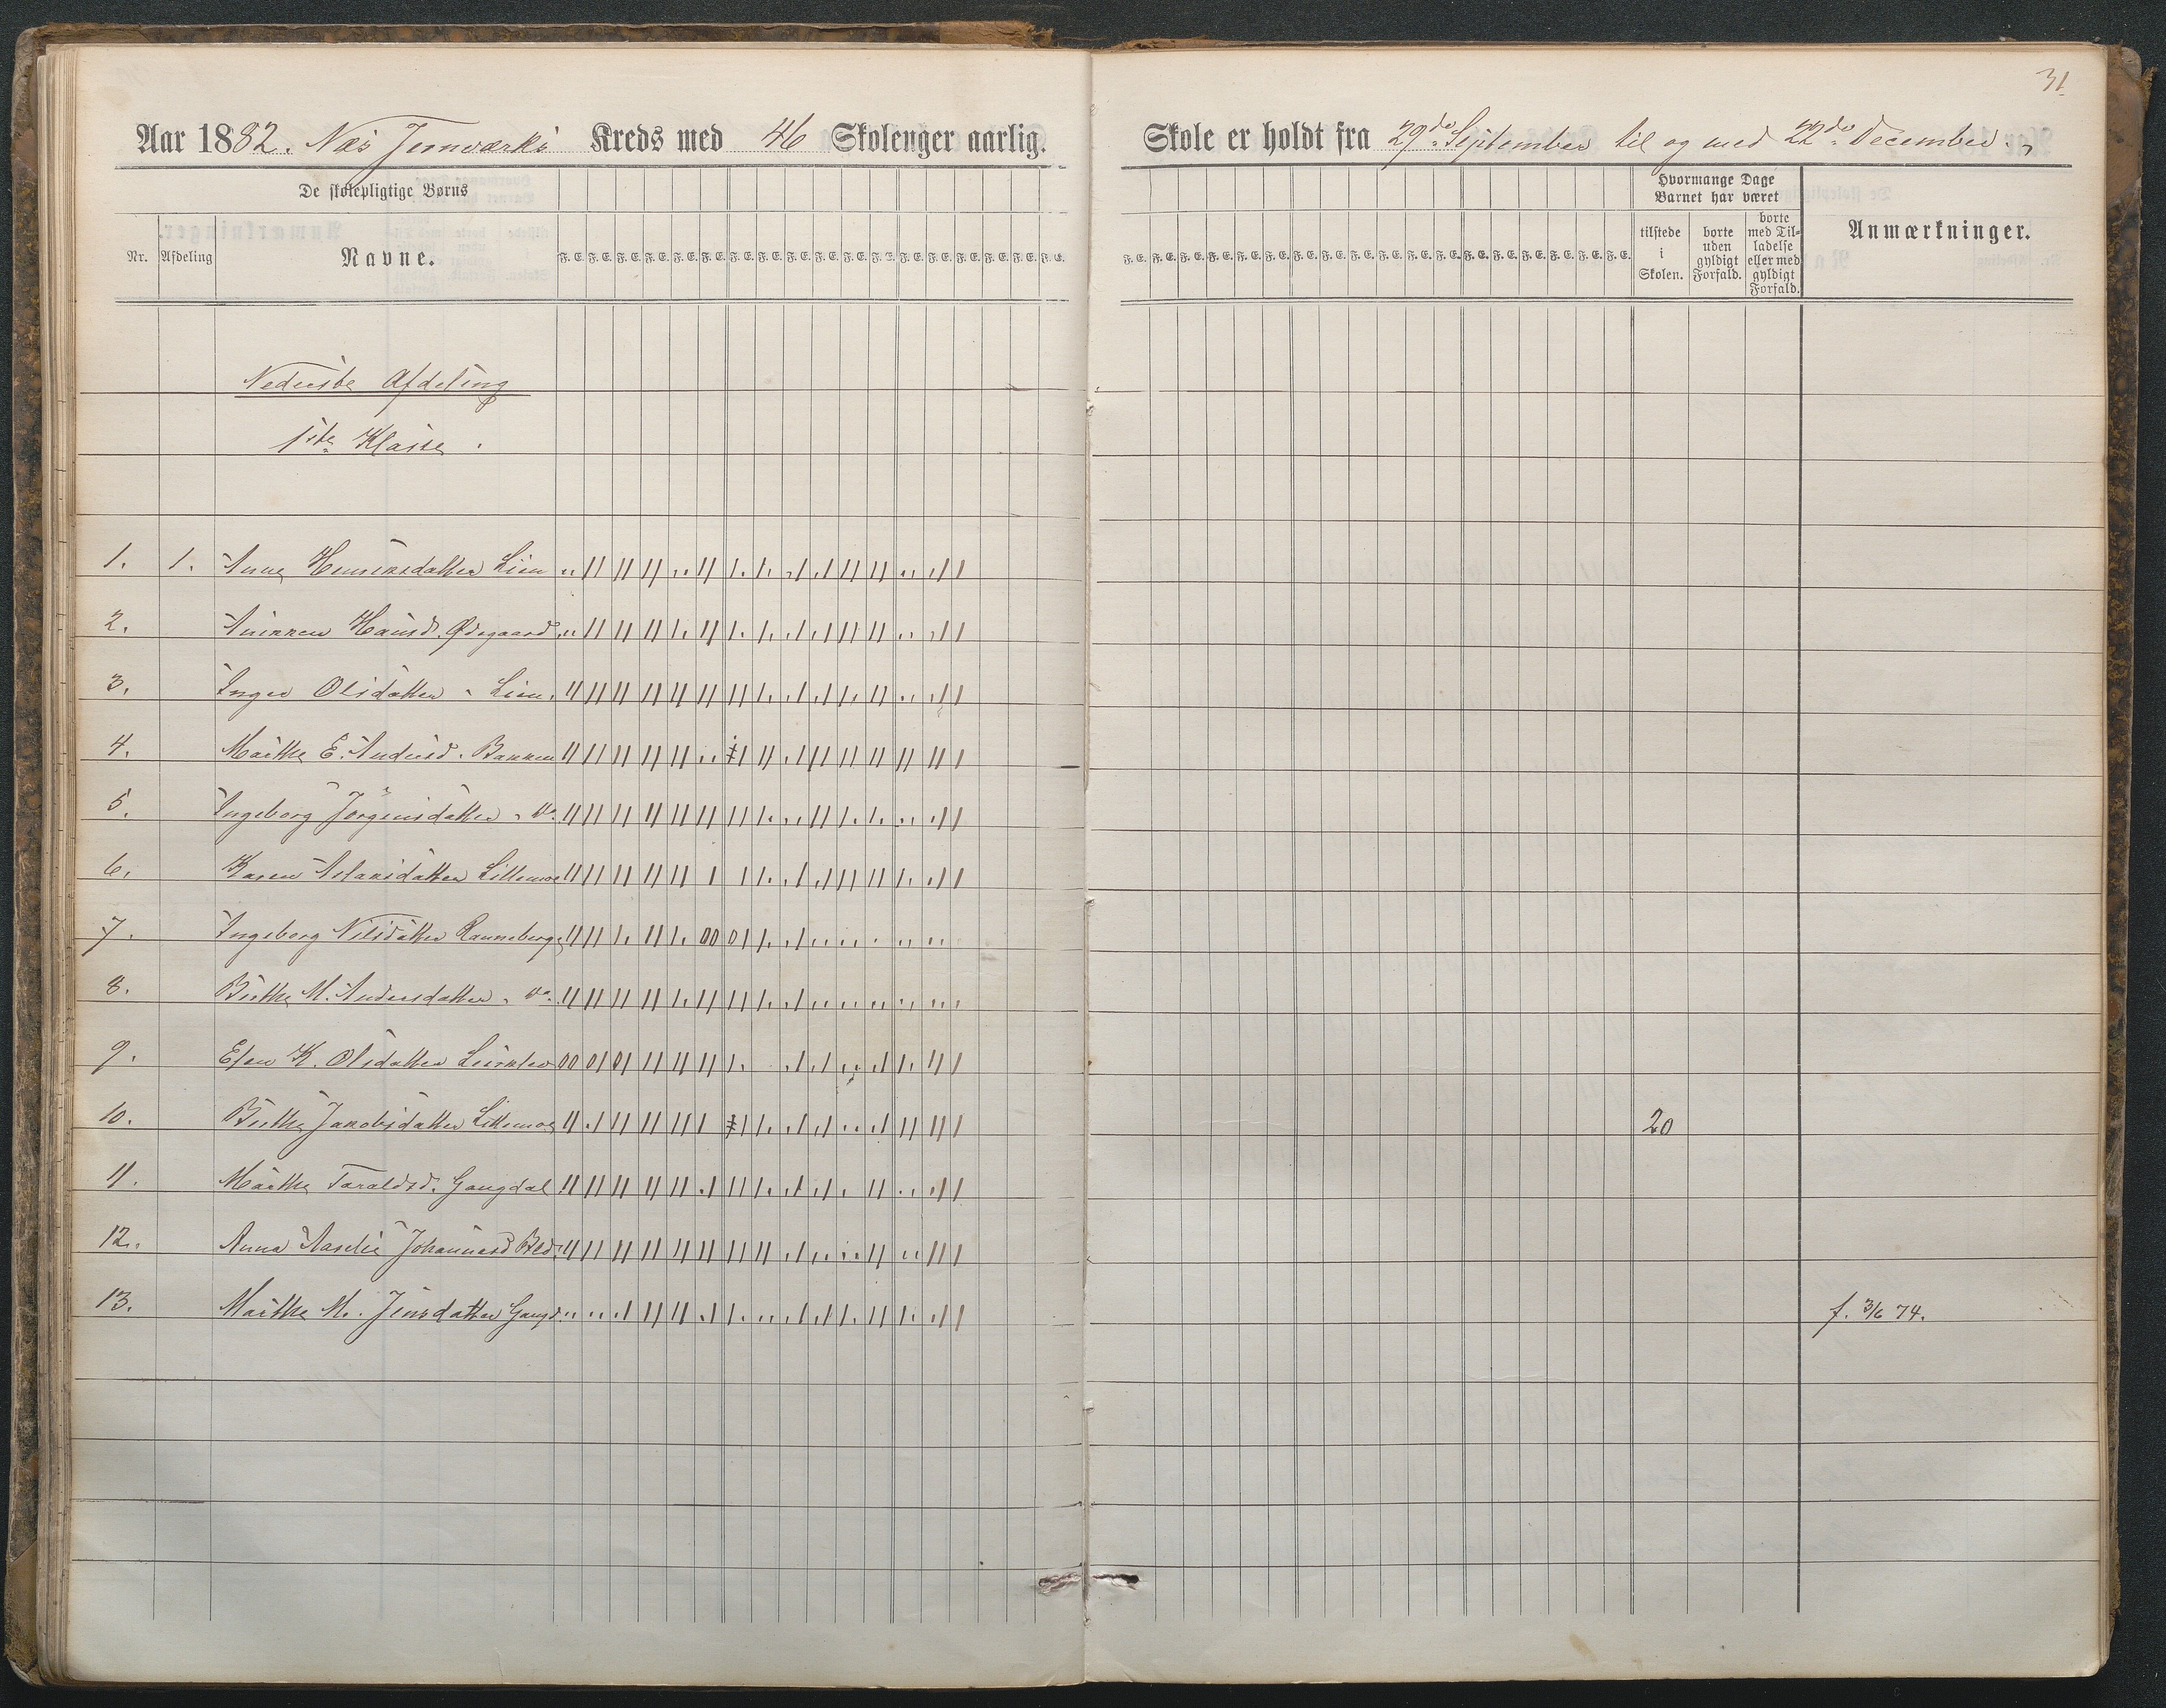 31
Aar 1882. Næs Jernværks Kreds med 46 Skolenger aarlig.
Skole er holdt fra 29de September til og med 22de December.
De skolepligtige Børns
Nr. Afdeling Navne.
F. E. F. E. F. E. F. E. F. E. F. E. F. E. F. E. F. E. F. E. F. E. F. E. F. E. F. E. F. E. F. E. F. E. F. E.
F. E. F. E. F. E. F. E. F. E. F. E. F. E. F. E. F. E. F. E. F. E. F. E. F. E. F. E. F. E. F. E. F. E. F. E.
Hvormange Dage
Barnet har været
tilstede
i
Skolen.
borte
uden
gyldigt
Forfald.
borte
med Til-
ladelse
eller med
gyldigt
Forfald.
Anmærkninger.
Nederste Afdeling
1ste Klasse.
1. 1. Anne Henriksdatter Lien
2. Annken Hansd. Ødegaard
3. Inger Olsdatter - Lien
4. Marthe E. Andersd. Bakken
5. Ingeborg Jörgensdatter - do.
6. Karen Aslaksdatter Lillemoe
7. Ingeborg Nilsdatter Ranneberg
8. Birthe M. Andersdatter - do.
9. Elen K. Olsdatter
10. Birthe Jakobsdatter Lillemoe 20
11. Marthe Taraldsd. Gangdal
12. Anna Aaselie Johannesd.
13. Marthe M. Jensdatter Gangd. f. 3/6 74.